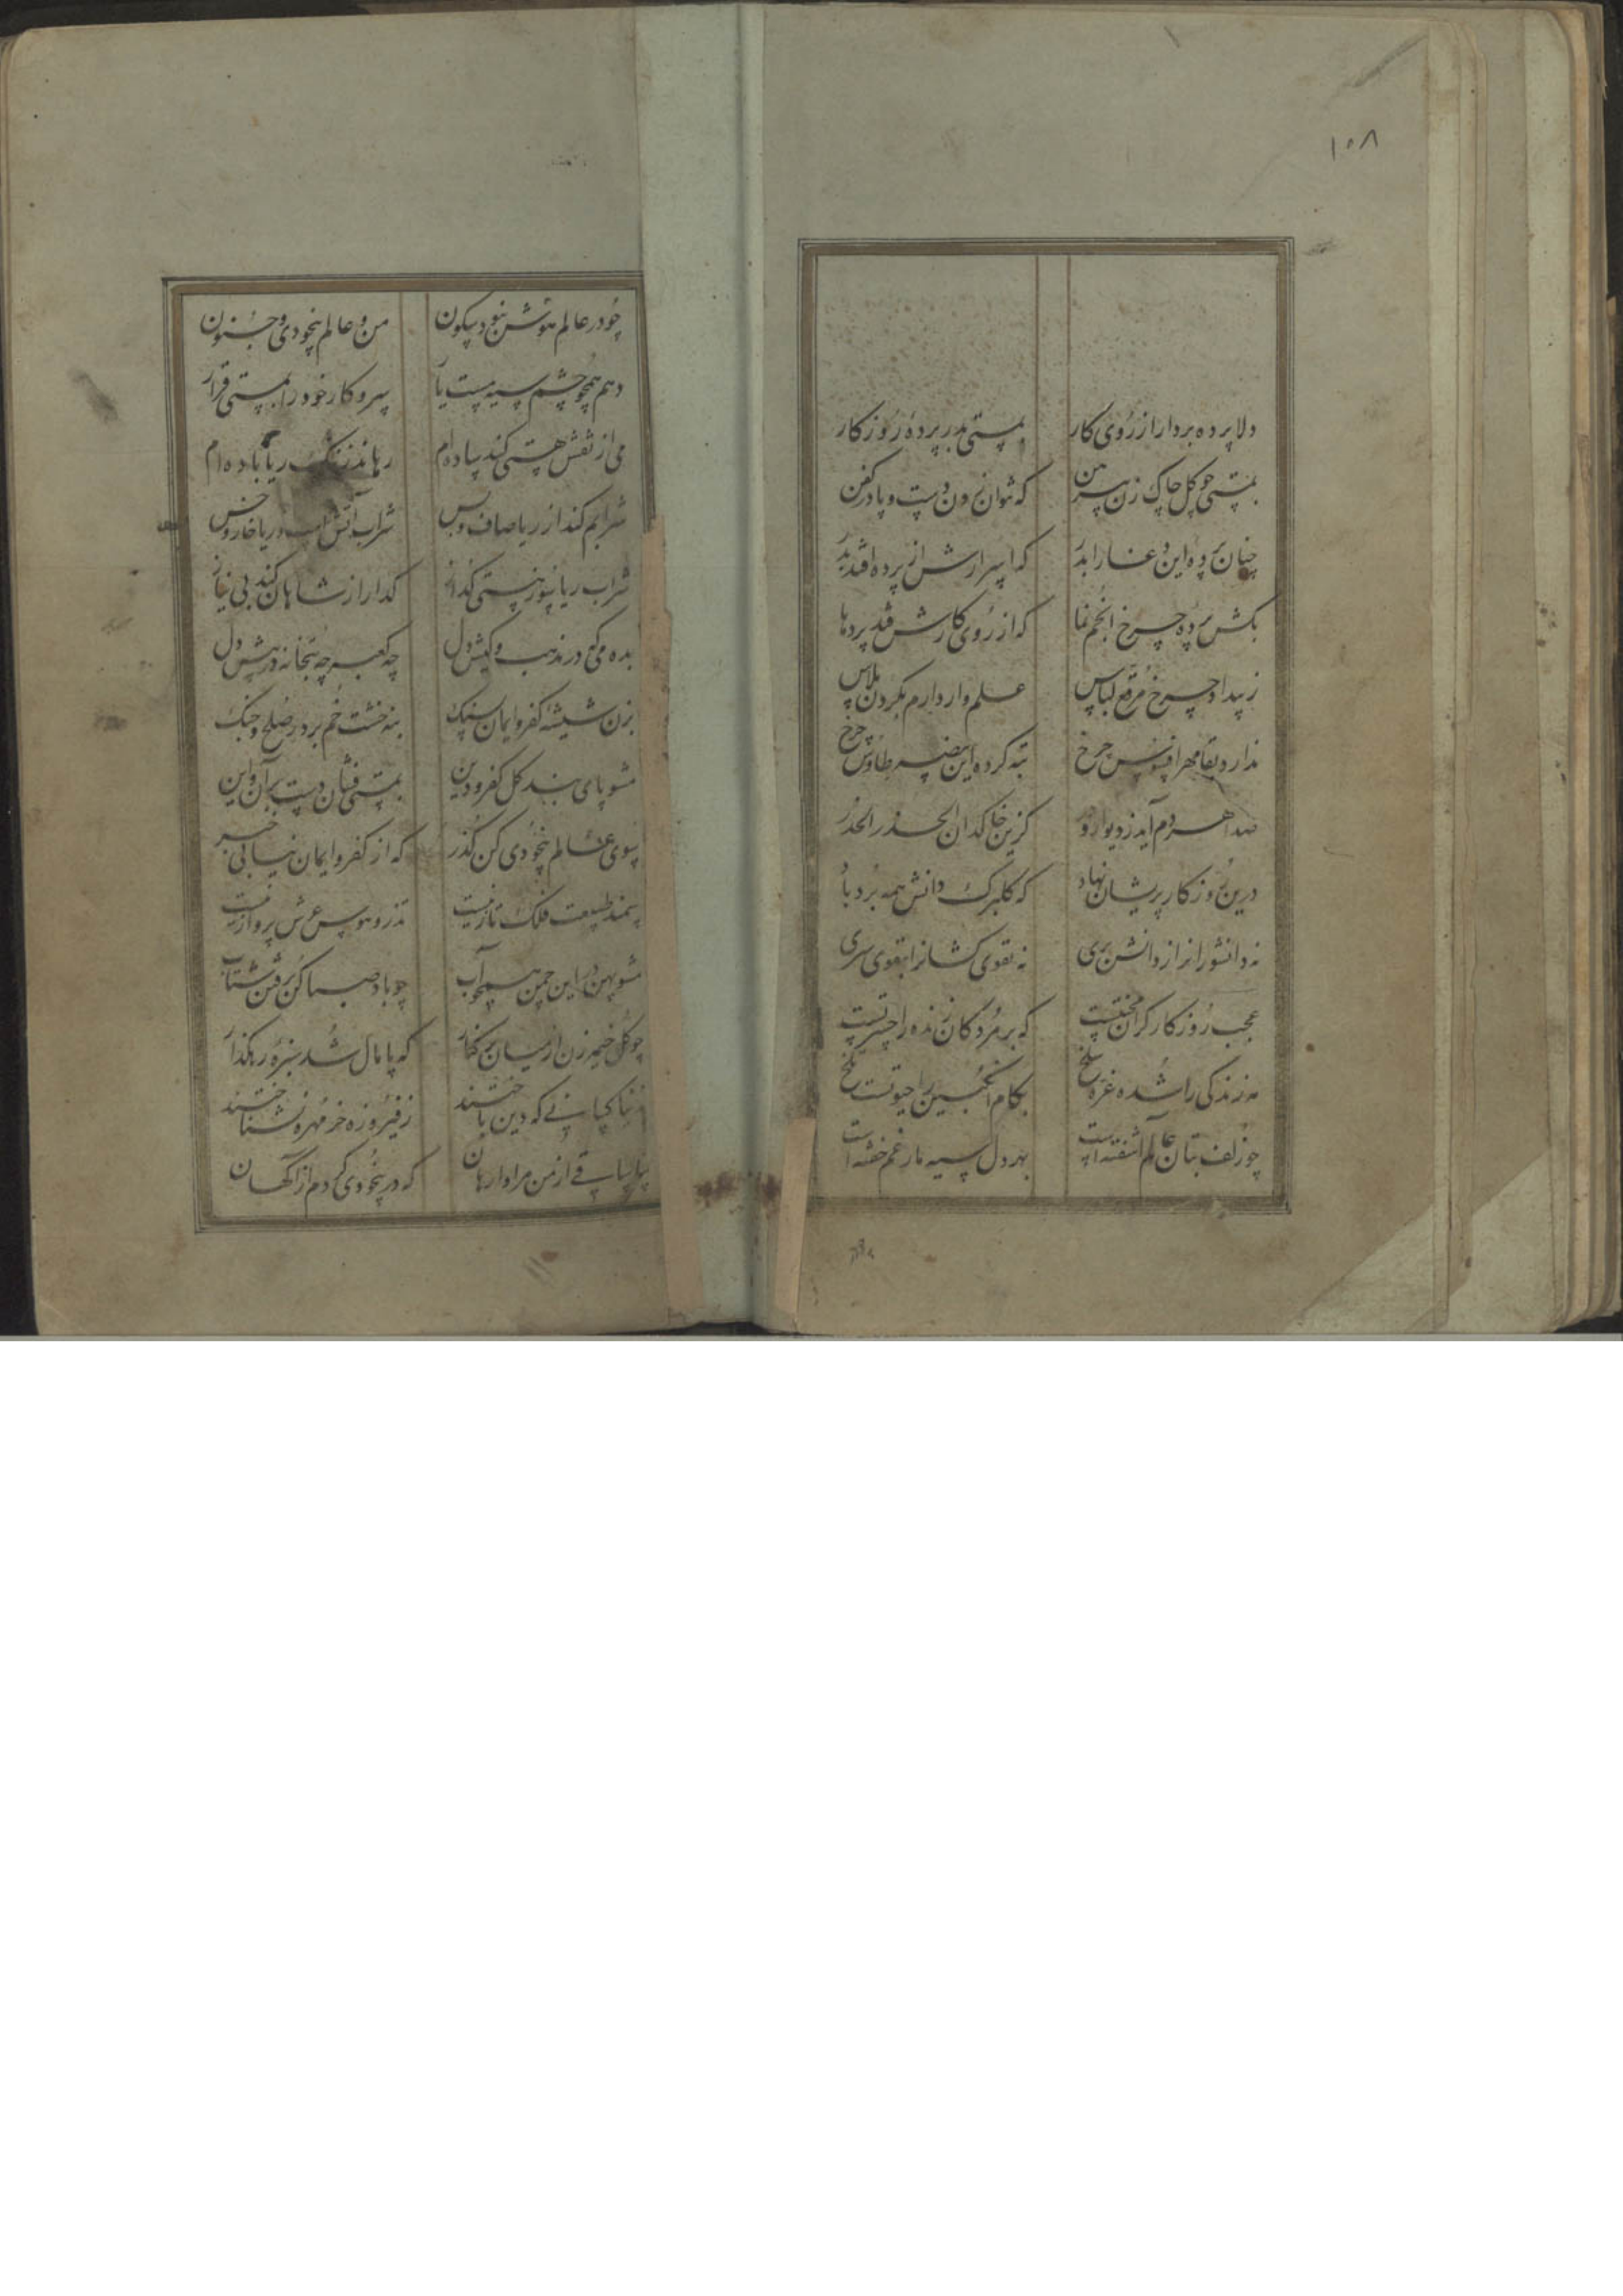 ۱۰۸
دلا پرده بردار از روی کار بمستی بدر پردهٔ روزکار
بمستی چو کل چاک زن پیرهن که نتوان زدن دست و پا در کفن
چنان پردهٔ این را بدر که اسرارش از پرده افتد بدر
بکش پردهٔ چرخ انجم نما که از روی کارش فتد پردها
ز بیداد چرخ مرقع لباس علم وار دارم بکردن پلاس
ندارد بقا مهر افسوس چرخ تبه کرده این بیضه طاوس چرخ
صدا هر دم آید ز دیوار و در کزین خاکدان الحذر الحذر
درین روزکار پریشان نهاد که کلبرک دانش همه برد باد
نه دانشورانرا ز دانش بری نه تقوی کشانرا بتقوی سری
عجب روزکار کران محنتیست که بر مردکان زنده را حسرتیست
مه زندکی را شده غره سلخ بکام انکبین حیوتست تلخ
چو زلف بتان عالم آشفته است بهر دل سیه مار غم خفته است
چو در عالم هوش نبود سکون من و عالم بیخودی و جنون
دهم همچو چشم سیه مست یار سر و کار خود را بمستی قرار
می از نقش هستی کند ساده‌ام رهاند ز ننک ریا باده‌ام
شرابم کند از ریا صاف و بس شراب آتش است و ریا خار و خس
شراب ریا سوز هستی کداز کدا را ز شاهان کند بی نیاز
بده می که در مذهب و کیش دل چه کعبه چه بتخانه در پیش دل
بزن شیشهٔ کفر و ایمان بسنک بنه خشت خم بر در صلح و جنک
مشو پای بند کل کفر و دین بمستی فشان دست بر آن و این
بسوی عالم بیخودی کن کذر که از کفر و ایمان نیابی خبر
سمند طبیعت فلک تاز نیست تذرو هوس عرش پرواز نیست
مشو پهن در این چمن همچو آب چو باد صبا کن برفتن شتاب
چو کل خیمه زن از میان بر کنار که پامال شد سبزهٔ رهکذار
کسانی که دین باختند ز فیروزه خر مهره نشناختند
بیا ساقی از من مرا وارهان که در بیخودی کردم از آکهان